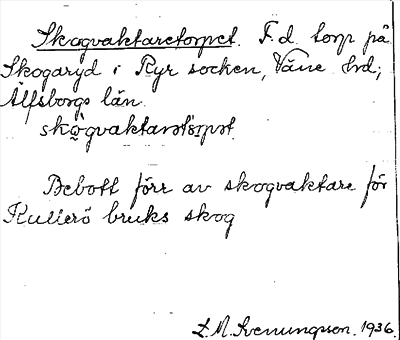 Skogvaktaretorpet. F.d. torp på
Skogaryd i Ryr socken, Väne hd;
Älfsborgs län.
Bebott förr av skogvaktare för
Kullerö bruks skog
L.M.Svenungsson. 1936.